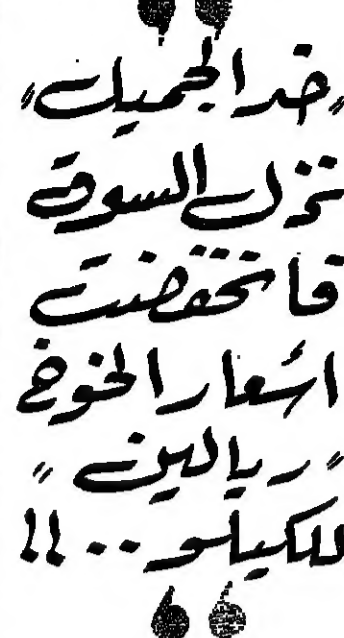 "خد الجميل"
نزل السوق
فانخفضت
اسعار الخوخ
"ريالين"
للكيلو .. !!